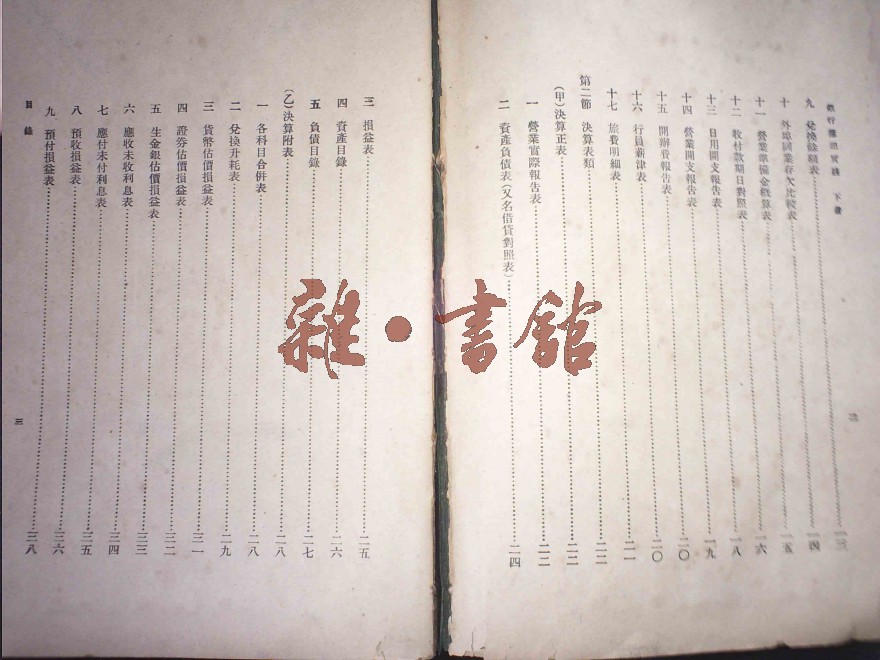 銀行簿記實踐 下冊
二
九 兌換餘額表 一三
十 外埠同業存欠比較表 一四
十一 營業準備金概算表 一五
十二 收付款期日對照表 一六
十三 日用開支報告表 一八
十四 營業開支報告表 一九
十五 開辦費報告表 二〇
十六 行員薪津表 二〇
十七 旅費明細表 二一
第二節 決算表類 二二
(甲)決算正表 二二
一 營業實際報告表 二二
二 資產負債表(又名借貸對照表) 二四
三 損益表 二五
四 資產目錄 二六
五 負債目錄 二七
(乙)決算附表 二八
一 各科目合併表 二八
二 兌換升耗表 二九
三 貨幣估價損益表 三一
四 證券估價損益表 三二
五 生金銀估價損益表 三三
六 應收未收利息表 三四
七 應付未付利息表 三五
八 預收損益表 三六
九 預付損益表 三八
目錄
三
雜·書館